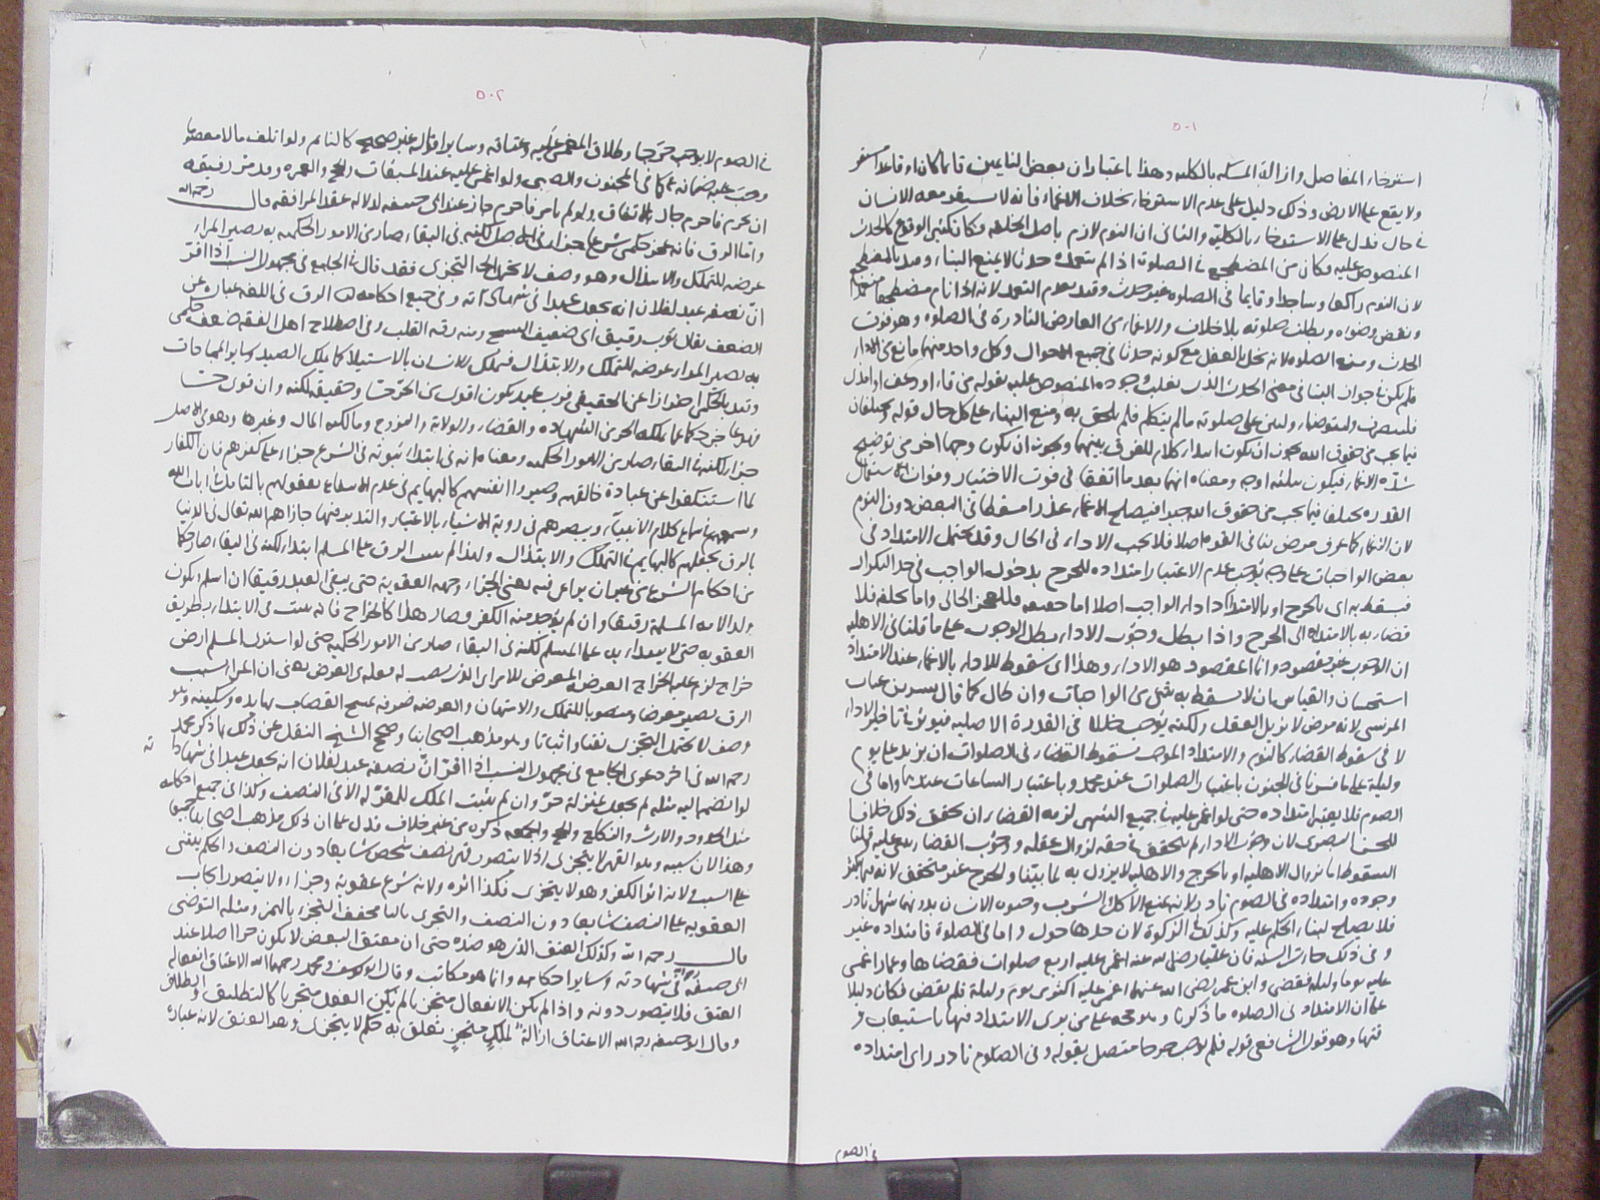 ٥٠١
استرخاء المفاصل وازالة المسكة بالكلية وهذا باعتبار ان بعض النايمين قايما كان او قاعدا
ولا يقع على الارض وذلك دليل على عدم الاسترخاء بخلاف الاغماء فانه لا معه الانسان
في حال فدل على الاسترخاء بالكلية والثاني ان النوم لازم باصل الخلقة وكان كثير الوقوع كالحدث
المنصوص عليه فكان من المضطجع في الصلوة اذا لم يتعمده حدثا لا يمنع البناء وقيد بالمضطجع
لان النوم راكعا وساجدا وقايما في الصلوة غير حدث وقيد بعدم التعمد لانه اذا نام مضطجعا متعمدا
ونقض وضوءه وبطلت صلوته بلا خلاف والاغماء من العوارض النادرة في الصلوة وهو فوت
الحدث ومنع الصلوة لانه يخل بالعقل مع كونه حدثا في جميع الاحوال وكل واحد منهما مانع من الاداء
فلم يكن في جواز البناء معنى الحدث الذي يغلب وجوده المنصوص عليه بقوله من قاء او رعف او امذى
فلينصرف وليتوضأ وليبن على صلوته ما لم يتكلم فلم يلحق به ومنع البناء على كل حال قوله ويختلفان
فيما يجب من حقوق الله يجوز ان يكون ابتداء كلام للفرق بينهما ويجوز ان يكون وجها اخر من توضيح
شدة الاغماء فيكون بيانه اوجه ومعناه انهما بعد ما اتفقا في فوت الاختيار وفوات استعمال
القدرة يختلفا فيما يجب من حقوق الله جبرا فيصلح الاغماء عذرا مسقطا في البعض دون النوم
لان الاغماء كما عرف مرض ينافي القوة اصلا فلا يجب الاداء في الحال وقد يحتمل الامتداد في
بعض الواجبات على وجه يوجب عدم الاعتبار امتداده للحرج بدخول الواجب في حد التكرار
فيسقط به اي بالحرج او بالامتداد اداء الواجب اصلا اما حقيقة فللعجز الحالي واما خلفه فلا
قضاء به بالامتداد الى الحرج واذا بطل وجوب الاداء بطل الوجوب على ما قلنا في الاهلية
ان الوجوب غير مقصود وانما المقصود هو الاداء وهذا اي سقوط الاداء بالاغماء عند الامتداد
استحسان والقياس ان لا يسقط به شيء من الواجبات وان طال كما قال بشر بن غياث
المريسي لانه مرض لا يزيل العقل ولكنه يوجب خللا في القدرة الاصلية فيؤثر في تاخير الاداء
لا في سقوط القضاء كالنوم والامتداد الموجب لسقوط القضاء في الصلوات ان يزيد على يوم
وليلة على ما فسرنا في الجنون باعتبار الصلوات عند محمد وباعتبار الساعات عندهما واما في
الصوم فلا يعتبر امتداده حتى لو اغمي عليه في جميع الشهر لزمه القضاء ان تحقق ذلك خلافا
للحسن البصري لان وجوب الاداء لم يتحقق في حقه لزوال عقله ووجوب القضاء يبتنى عليه قلنا
السقوط اما بزوال الاهلية او بالحرج والاهلية لا يزول به لما بينا والحرج غير متحقق لانه فيما يكثر
وجوده وامتداده في الصوم نادر لانه يمنع الاكل والشرب وحيوة الانسان بدونهما شهرا نادر
فلا يصلح لبناء الحكم عليه وكذلك في الزكوة لان حدها حول واما في الصلوة فامتداده غير
وفي ذلك جاءت السنة فان عليا رضي الله عنه اغمي عليه اربع صلوات فقضاها وعمار اغمي
عليه يوما وليلة فقضى وابن عمر رضي الله عنهما اغمي عليه اكثر من يوم وليلة فلم يقض فكان دليلا
على ان الامتداد في الصلوة ما ذكرنا وهو حجة على من يرى الامتداد فيها باستيعاب
وقتها وهو قول الشافعي قوله فلم يوجب حرجا متصل بقوله وفي الصوم نادر اي امتداده
في الصوم
٥٠٢
في الصوم لا يوجب حرجا وطلاق المغمى عليه وعتاقه وسائر اقواله غير صحيح كالنايم ولو اتلف مالا معصوما
وجب عليه ضمانه كما في المجنون والصبي ولو اغمي عليه عند الميقات والحج والعمرة وقد مر رفيقه
ان يحرم فاحرم جاز بالاتفاق ولو لم يامر فاحرم جاز عند ابي حنيفة لدلالة عقد المرافقة قال رحمه الله
واما الرق فانه عجز حكمي شرع جزاء في الاصل لكنه في البقاء صار من الامور الحكمية به يصير المرء
عرضة للتملك والابتذال وهو وصف لا يحتمل التجزي فقد قال في الجامع في مجهول النسب اذا اقر
ان نصفه عبد لفلان انه يجعل عبدا في شهاداته وفي جميع احكامه الرق في اللغة عبارة عن
الضعف يقال ثوب رقيق اي ضعيف النسج ومنه رقة القلب وفي اصطلاح اهل الفقه ضعف حكمي
به يصير المرء عرضة للتملك والابتذال فيملك الانسان بالاستيلاء كما يملك الصيد وسائر المباحات
وقيد بالحكمي احترازا عن الحقيقي فرب عبد يكون اقوى من الحر حسا وحقيقة لكنه وان قوي حسا
فهو عاجز حكما عما يملكه الحر من الشهادة والقضاء والولاية والتزوج ومالكية المال وغيرها وهو في الاصل
جزاء لكنه في البقاء صار من الامور الحكمية ومعناه انه في ابتداء ثبوته في الشرع جزاء على كفرهم فان الكفار
لما استنكفوا عن عبادة خالقهم وصيروا انفسهم كالبهايم في عدم الانتفاع بعقولهم بالتامل في ايات الله
وسمعهم باسماع كلام الانبياء وبصرهم في رؤية الاشياء بالاعتبار والتدبر فيها جازاهم الله تعالى في الدنيا
بالرق بجعلهم كالبهايم في التملك والابتذال ولهذا لم يثبت الرق على المسلم ابتداء لكنه في البقاء صار حكما
من احكام الشرع من غير ان يراعى فيه معنى الجزاء وجهة العقوبة حتى يبقى العبد رقيقا ان اسلم ويكون
ولد الامة المسلمة رقيقا وان لم يوجد منه الكفر وصار هذا كالخراج فانه يثبت في الابتداء بطريق
العقوبة حتى لا يبتدأ به على المسلم لكنه في البقاء صار من الامور الحكمية حتى لو اشترى المسلم ارض
خراج لزم عليه الخراج العرضة المعروض للامر اي الذي نصب له فعلة من العرض يعني ان المرء بسبب
الرق يصير معرضا ومنصوبا للتملك والامتهان والعرضة خرقة يمسح القصاب بها يده وسكينه وهو
وصف لا يحتمل التجزي نفيا واثباتا وهو مذهب اصحابنا وصحح الشيخ النقل عن ذلك بما ذكر محمد
رحمه الله في اخر دعوى الجامع في مجهول النسب اذا اقر ان نصفه عبد لفلان انه يجعل عبدا في شهاداته
لو انضم اليه مثله لم يجعل بمنزلة حر وان لم يثبت الملك للمقر له الا في النصف وكذا في جميع احكامه
مثل الحدود والارث والنكاح والحج والجمعة ذكره من غير خلاف فدل على ان ذلك مذهب اصحابنا جميعا
وهذا لان سببه وهو القهر لا يتجزى اذ لا يتصور قهر نصف شخص شايعا دون النصف والحكم يبتنى
على السبب ولانه اثر الكفر وهو لا يتجزى فكذا اثره ولانه شرع عقوبة وجزاء ولا يتصور ايجاب
العقوبة على النصف شايعا دون النصف والتجزي بالياء مخفف التجزؤ بالهمز ومثله التوضي
قال رحمه الله وكذلك العتق الذي هو ضده حتى ان معتق البعض لا يكون حرا اصلا عند
ابي حنيفة في شهادته وسائر احكامه وانما هو مكاتب وقال ابو يوسف ومحمد رحمهما الله الاعتاق انفعاله
العتق فلا يتصور دونه واذا لم يكن الانفعال متجزيا لم يكن الفعل متجزيا كالتطليق والطلاق
وقال ابو حنيفة رحمه الله الاعتاق ازالة لملك متجز تعلق به حكم لا يتجزى وهو العتق لانه عبارة